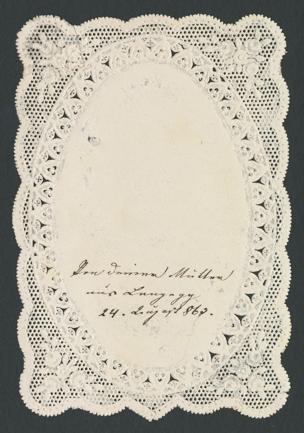 Von deiner Mutter
aus Langegg
24. August 863.